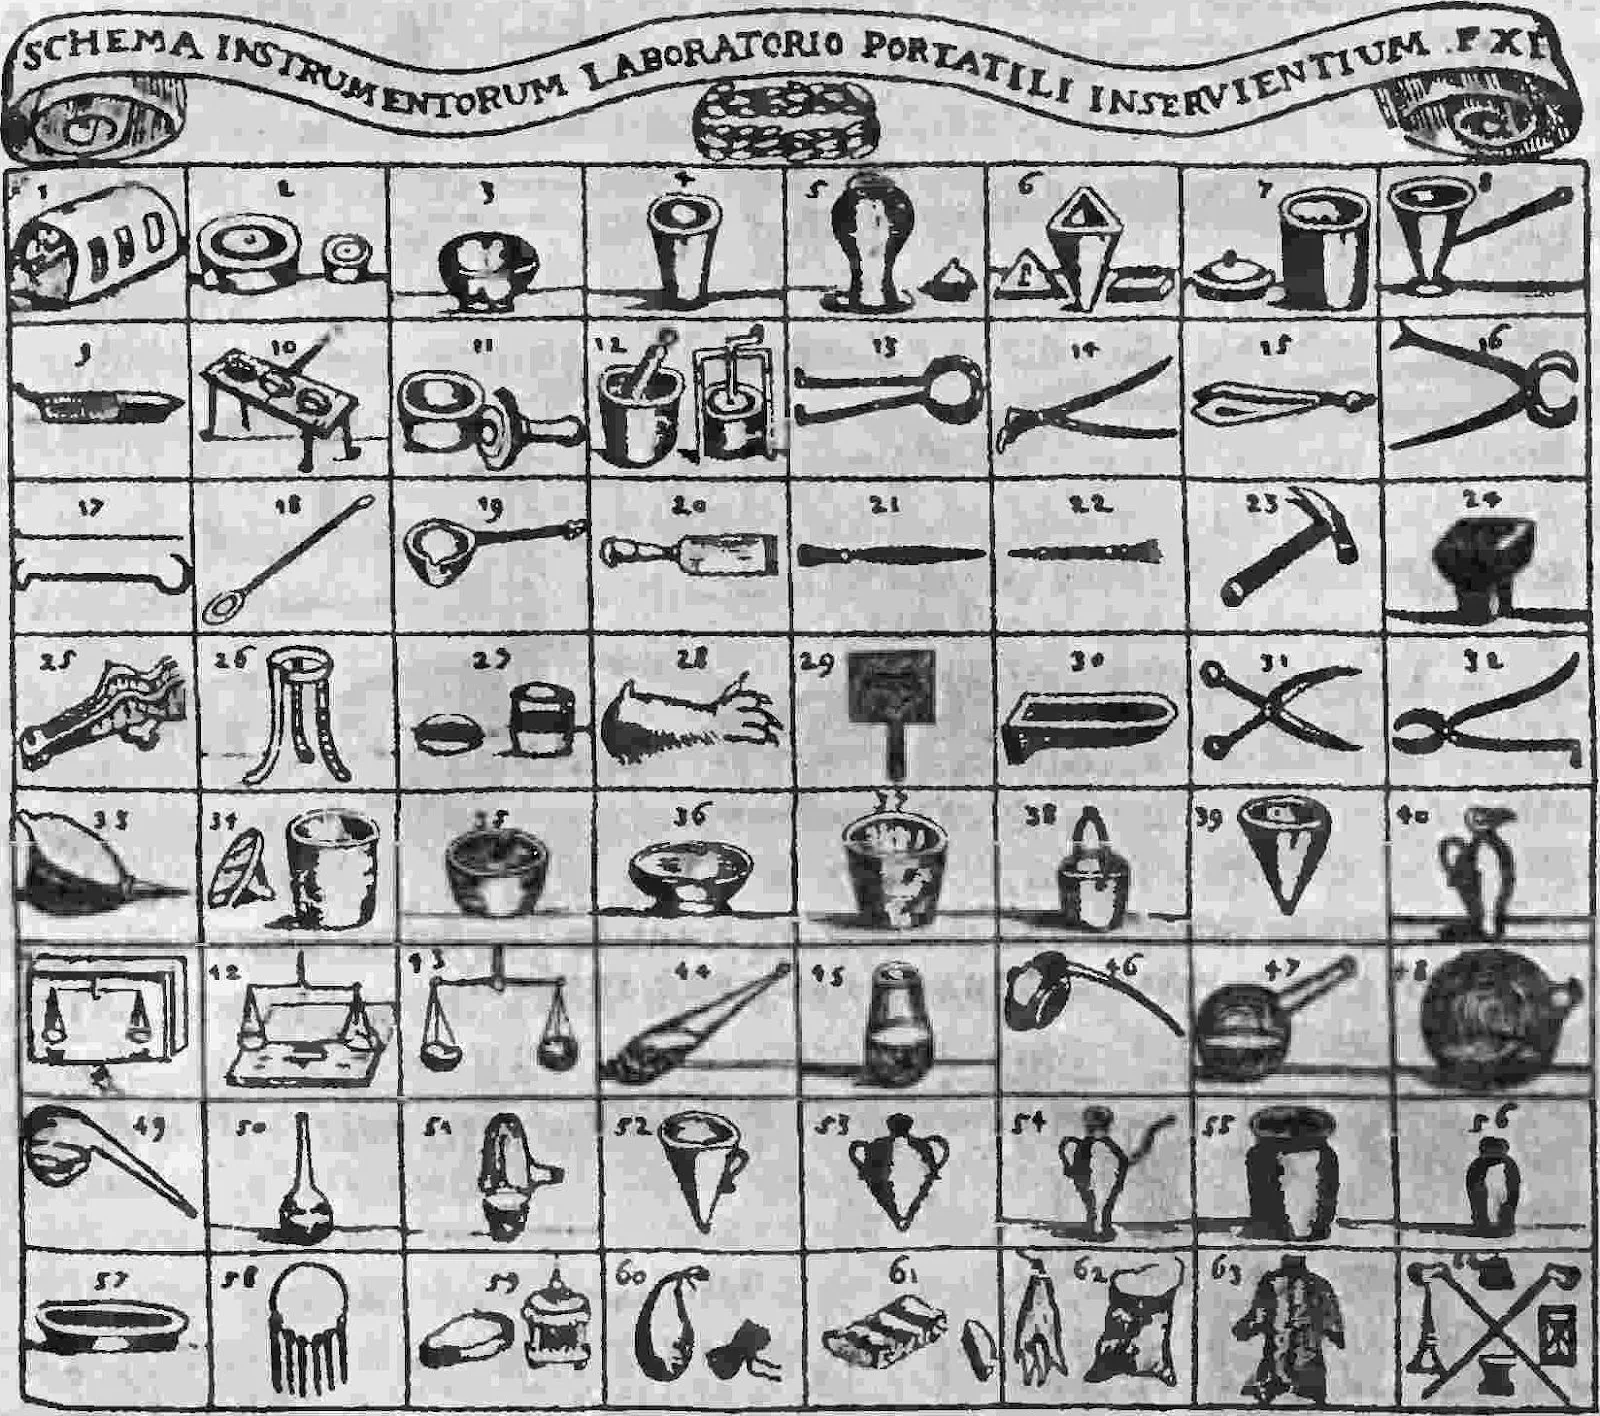 SCHEMA INSTRUMENTORUM LABORATORIO PORTATILI INSERVIENTIUM . F XI
1 2 3 4 5 6 7 8
9 10 11 12 13 14 15 16
17 18 19 20 21 22 23 24
25 26 27 28 29 30 31 32
33 34 35 36 37 38 39 40
42 43 44 45 46 47 48
49 50 51 52 53 54 55 56
57 58 59 60 61 62 63